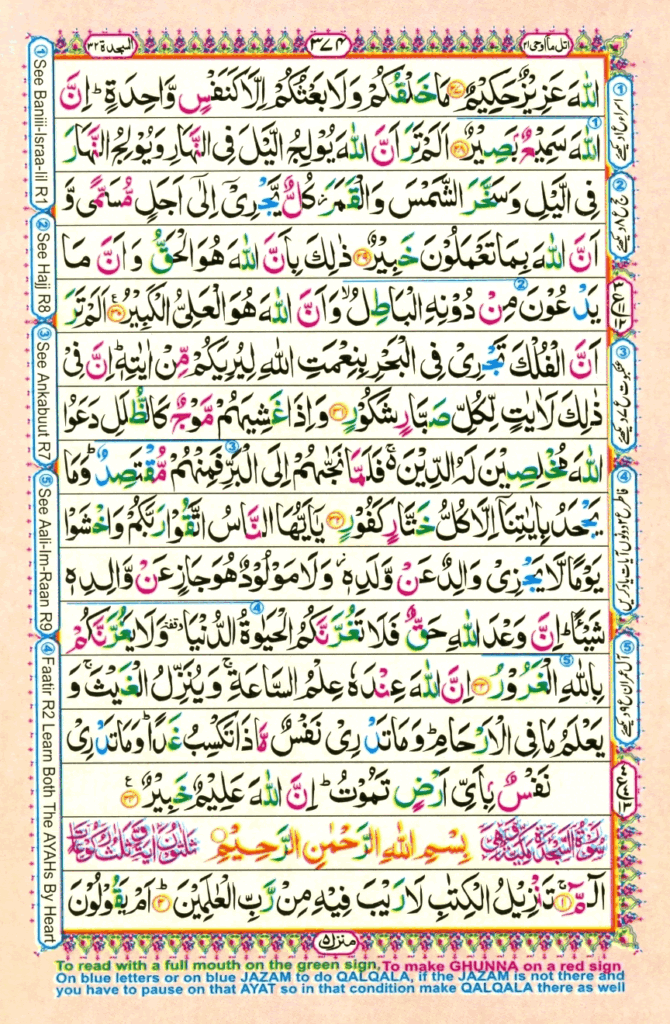 اتل ما اوحی ۲۱
۳۷۴
السجدة ۳۲
اللهَ عَزِيْزٌ حَكِيْمٌ ﴿۲۷﴾ مَا خَلْقُكُمْ وَلَا بَعْثُكُمْ اِلَّا كَنَفْسٍ وَّاحِدَةٍ ؕ اِنَّ
اللهَ سَمِيْعٌۢ بَصِيْرٌ ﴿۲۸﴾ اَلَمْ تَرَ اَنَّ اللهَ يُوْلِجُ الَّيْلَ فِى النَّهَارِ وَيُوْلِجُ النَّهَارَ
فِى الَّيْلِ وَسَخَّرَ الشَّمْسَ وَالْقَمَرَ ؗ كُلٌّ يَّجْرِىْۤ اِلٰٓى اَجَلٍ مُّسَمًّى وَّ
اَنَّ اللهَ بِمَا تَعْمَلُوْنَ خَبِيْرٌ ﴿۲۹﴾ ذٰلِكَ بِاَنَّ اللهَ هُوَ الْحَقُّ وَاَنَّ مَا
يَدْعُوْنَ مِنْ دُوْنِهِ الْبَاطِلُ ۙ وَاَنَّ اللهَ هُوَ الْعَلِىُّ الْكَبِيْرُ ﴿۳۰﴾ اَلَمْ تَرَ
اَنَّ الْفُلْكَ تَجْرِىْ فِى الْبَحْرِ بِنِعْمَتِ اللهِ لِيُرِيَكُمْ مِّنْ اٰيٰتِهٖ ؕ اِنَّ فِىْ
ذٰلِكَ لَاٰيٰتٍ لِّكُلِّ صَبَّارٍ شَكُوْرٍ ﴿۳۱﴾ وَاِذَا غَشِيَهُمْ مَّوْجٌ كَالظُّلَلِ دَعَوُا
اللهَ مُخْلِصِيْنَ لَهُ الدِّيْنَ ۚ۬ فَلَمَّا نَجّٰىهُمْ اِلَى الْبَرِّ فَمِنْهُمْ مُّقْتَصِدٌ ؕ وَمَا
يَجْحَدُ بِاٰيٰتِنَاۤ اِلَّا كُلُّ خَتَّارٍ كَفُوْرٍ ﴿۳۲﴾ يٰۤاَيُّهَا النَّاسُ اتَّقُوْا رَبَّكُمْ وَاخْشَوْا
يَوْمًا لَّا يَجْزِىْ وَالِدٌ عَنْ وَّلَدِهٖ ؗ وَلَا مَوْلُوْدٌ هُوَ جَازٍ عَنْ وَّالِدِهٖ
شَيْـًٔا ؕ اِنَّ وَعْدَ اللهِ حَقٌّ فَلَا تَغُرَّنَّكُمُ الْحَيٰوةُ الدُّنْيَا ۥ وَلَا يَغُرَّنَّكُمْ
بِاللهِ الْغَرُوْرُ ﴿۳۳﴾ اِنَّ اللهَ عِنْدَهٗ عِلْمُ السَّاعَةِ ۚ وَيُنَزِّلُ الْغَيْثَ ۚ وَ
يَعْلَمُ مَا فِى الْاَرْحَامِ ؕ وَمَا تَدْرِىْ نَفْسٌ مَّاذَا تَكْسِبُ غَدًا ؕ وَمَا تَدْرِىْ
نَفْسٌۢ بِاَىِّ اَرْضٍ تَمُوْتُ ؕ اِنَّ اللهَ عَلِيْمٌ خَبِيْرٌ ﴿۳۴﴾
سُوْرَةُ السَّجْدَةِ مَكِّيَّةٌ وَّهِىَ بِسْمِ اللهِ الرَّحْمٰنِ الرَّحِيْمِ ثَلٰثُوْنَ اٰيَةً وَّثَلٰثُ رُكُوْعَاتٍ
الٓمّٓ ﴿۱﴾ تَنْزِيْلُ الْكِتٰبِ لَا رَيْبَ فِيْهِ مِنْ رَّبِّ الْعٰلَمِيْنَ ﴿۲﴾ اَمْ يَقُوْلُوْنَ
منزل ۵
① See Baniii-Israa-Iil R1
② See Hajj R8
③ See Ankabuut R7
⑤ See Aali-Im-Raan R9
④ Faatir R2 Learn Both The AYAHs By Heart
To read with a full mouth on the green sign, To make GHUNNA on a red sign
On blue letters or on blue JAZAM to do QALQALA, if the JAZAM is not there and
you have to pause on that AYAT so in that condition make QALQALA there as well